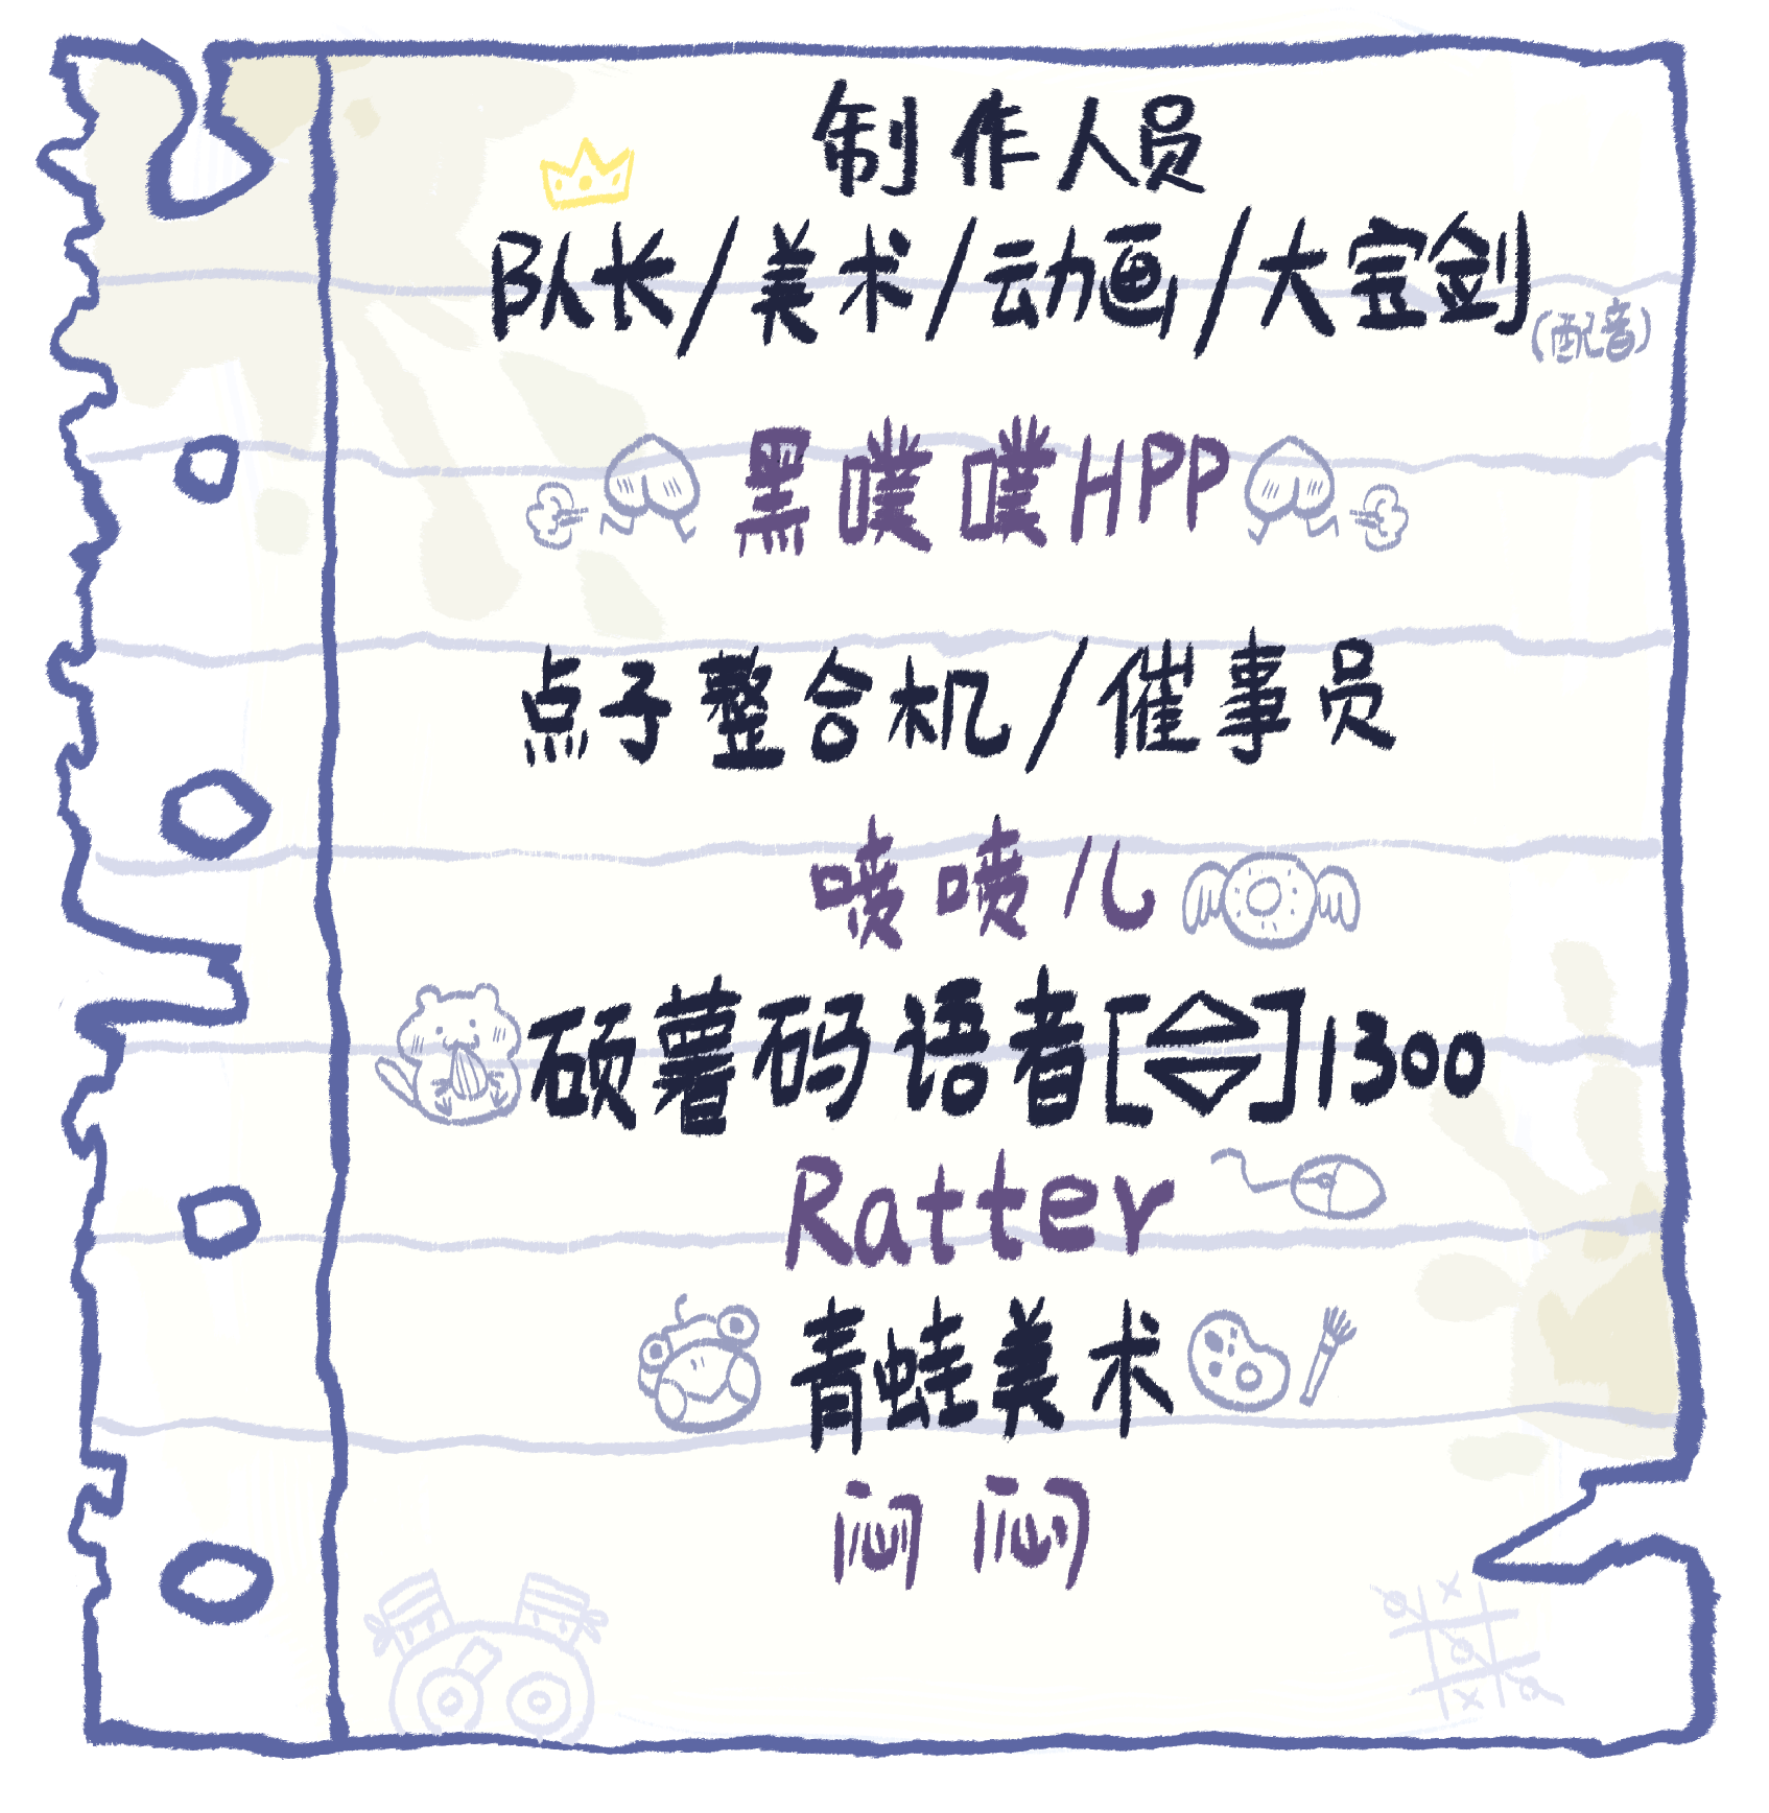 制作人员
队长/美术/动画/大宝剑(配音)
黑噗噗HPP
点子整合机/催事员
唛唛儿
硕薯码语者[令]1300
Ratter
青蛙美术
闷闷